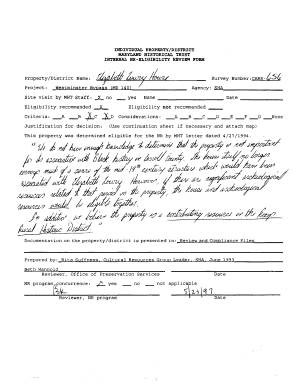 INDIVIDUAL PROPERTY/DISTRICT
MARYLAND HISTORICAL TRUST
INTERNAL NR-ELIGIBILITY REVIEW FORM
Property/District Name: Elizabeth Lowry House Survey Number: CARR-656
Project: Westminster Bypass (MD 140) Agency: SHA
Site visit by MHT Staff: X no yes Name Date
Eligibility recommended X Eligibility not recommended
Criteria: A B X C X D Considerations: A B C D E F G None
Justification for decision: (Use continuation sheet if necessary and attach map)
This property was determined eligible for the NR by MHT letter dated 4/27/1994.
"We do not have enough knowledge to determine that the property is not important
for its association with black history in Carroll County. The house itself no longer
conveys much of a sense of the mid-19th century structure which would have been
associated with Elizabeth Lowry. However, if there are significant archeological
resources related to that period on the property, the house and archeological
resources would be eligible together.
In addition we believe the property is a contributing resource in the large
Rural Historic District."
Documentation on the property/district is presented in: Review and Compliance Files
Prepared by: Rita Suffness, Cultural Resources Group Leader, SHA, June 1993
Beth Hannold
Reviewer, Office of Preservation Services Date
NR program concurrence: yes no not applicable
5/23/97
Reviewer, NR program Date